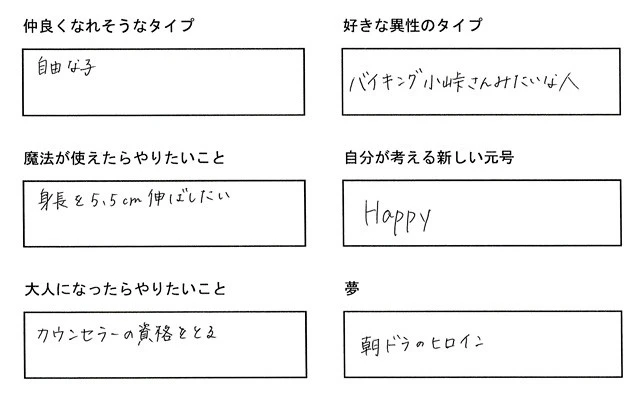 仲良くなれそうなタイプ
自由な子
好きな異性のタイプ
バイキング小峠さんみたいな人
魔法が使えたらやりたいこと
身長を5.5cm伸ばしたい
自分が考える新しい元号
Happy
大人になったらやりたいこと
カウンセラーの資格をとる
夢
朝ドラのヒロイン